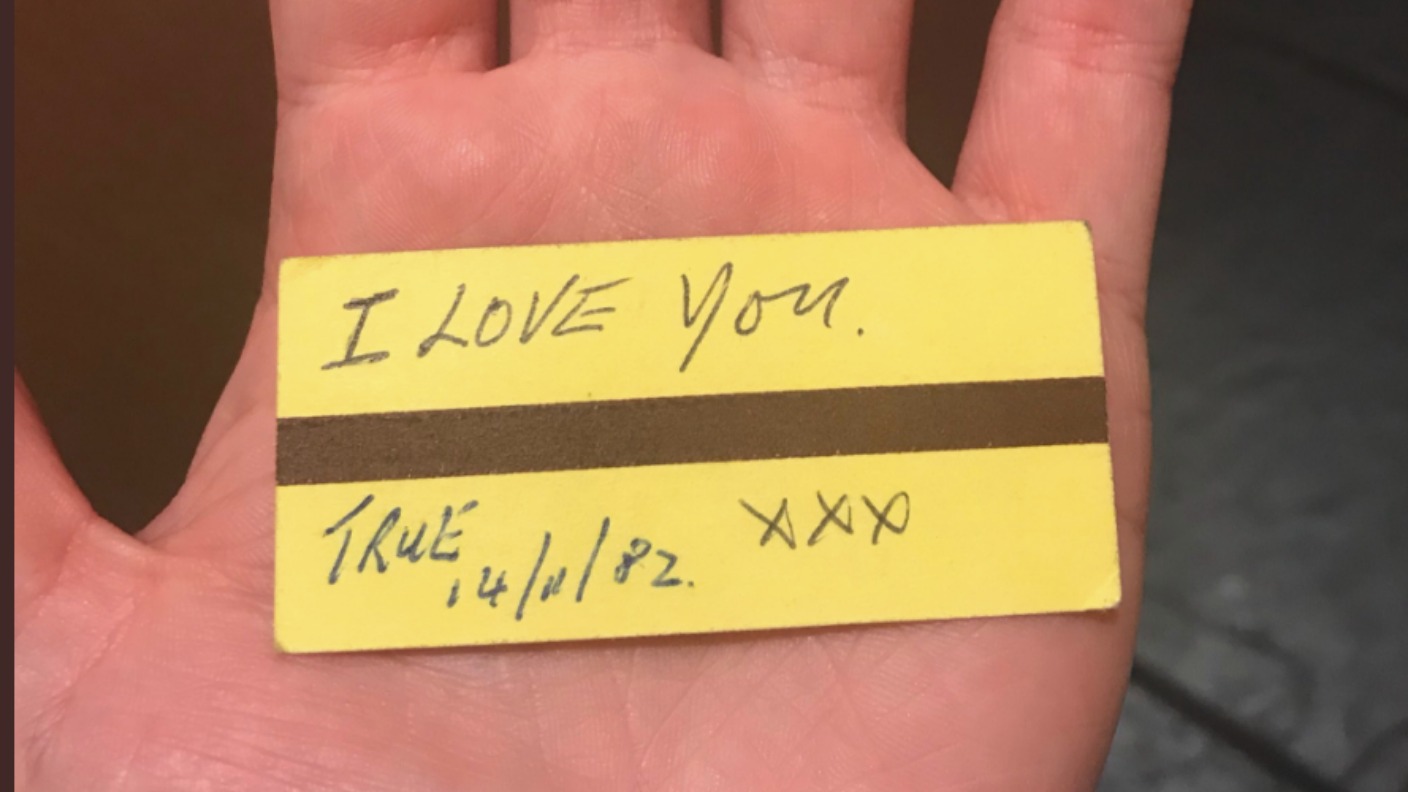 I LOVE You.
TRUE XXX
14/11/82.